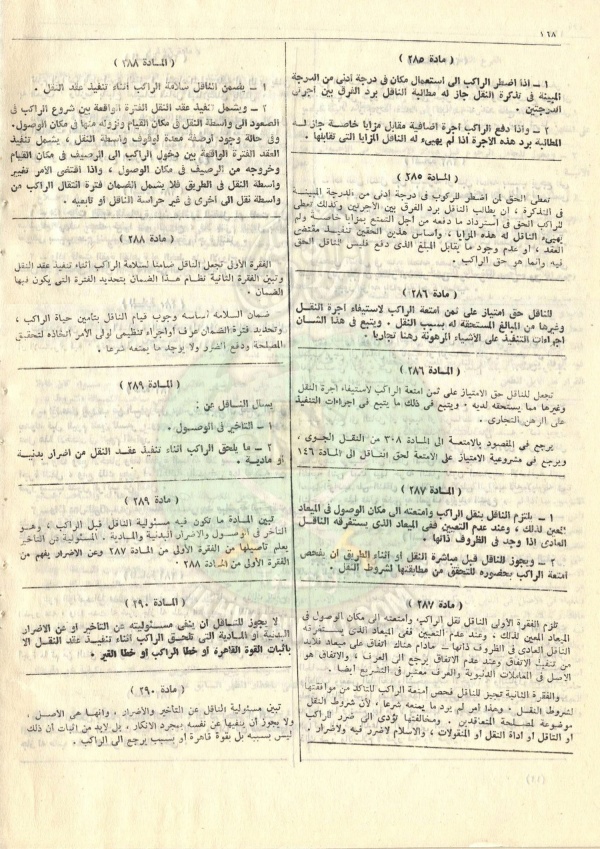 ١٦٨
( مادة ٢٨٥ )
١ ـ اذا اضطر الراكب الى استعمال مكان فى درجة أدنى من الدرجة
المبينة فى تذكرة النقل جاز له مطالبة الناقل برد الفرق بين أجرتى
الدرجتين .
٢ ـ واذا دفع الراكب أجرة اضافية مقابل مزايا خاصـة جاز لـه
المطالبة برد هذه الأجرة اذا لم يهيىء له الناقل المزايا التى تقابلها .
( المـادة ٢٨٥ )
تعطى الحق لمن اضطر للركوب فى درجة أدنى من الدرجة المبينـة
فى التذكرة ، ان يطالب الناقل برد الفرق بين الأجرتين وكذلك تعطى
للراكب الحق فى استرداد ما دفعه من أجل التمتع بمزايا خاصـة ولم
يهيىء الناقل له هذه المزايا ، وأساس هذين الحقين تنفيـذ مقتضى
العقد ، او عدم وجود ما يقابل المبلغ الذى دفع فليس للناقل الحق
فيه وانما هو حق الراكب .
( مادة ٢٨٦ )
للناقل حق امتياز على ثمن أمتعة الراكب لاستيفاء اجرة النقـل
وغيرها من المبالغ المستحقة له بسبب النقل . ويتبع فى هذا الشـان
اجراءات التنفيذ على الأشياء المرهونة رهنا تجاريا .
( المـادة ٢٨٦ )
تجعل للناقل حق الامتياز على ثمن امتعة الراكب لاستيفاء أجرة النقل
وغيرها مما يستحقه لديه . ويتبع فى ذلك ما يتبع فى اجراءات التنفيذ
على الرهن التجارى .
يرجع فى المقصود بالامتعة الى المـادة ٣٠٨ من النقـل الجـوى ،
ويرجع فى مشروعية الامتياز على الامتعة لحق الناقل الى المادة ١٤٦
( المـادة ٢٨٧ )
١ ـ يلتزم الناقل بنقل الراكب وأمتعته الى مكان الوصول فى الميعاد
المعين لذلك ، وعند عدم التعيين ففى الميعاد الذى يستغرقه الناقـل
العادى اذا وجد فى الظروف ذاتها .
٢ ـ ويجوز للناقل قبل مباشرة النقل أو اثناء الطريق ان يفحص
أمتعة الراكب بحضوره للتحقق من مطابقتها لشروط النقل .
( مادة ٢٨٧ )
تلزم الفقرة الأولى الناقل نقل الراكب وأمتعته الى مكان الوصول فى
الميعاد المعين لذلك . وعند عدم التعيين ففى الميعاد الذى يستغرقه
الناقل العادى فى الظروف ذاتها ـ مادام هناك اتفاق على ميعاد فلابد
من تنفيذ الاتفاق وعند عدم الاتفاق يرجع الى العرف ، والاتفاق هو
الأصل فى المعاملات الدنيوية والعرف معتبر فى التشريع أيضا .
والفقرة الثانية تجيز للناقل فحص أمتعة الراكب للتأكد من موافقتها
لشروط النقـل . وهذا أمر لم يرد ما يمنعه شرعا ، لأن شروط النقل
موضوعة لمصلحة المتعاقدين . ومخالفتها تؤدى الى ضرر للراكب
او الناقل أو اداة النقل او المنقولات ، والاسلام لاضرر فيه ولاضرار .
( المـادة ٢٨٨ )
١ ـ يضمن الناقل سلامة الراكب أثناء تنفيذ عقد النقل .
٢ ـ ويشمل تنفيذ عقد النقل الفترة الواقعة بين شروع الراكب فى
الصعود الى واسطة النقل فى مكان القيام ونزوله منها فى مكان الوصول.
وفى حالة وجود أرصفة معدة لوقوف واسطة النقل ، يشمل تنفيذ
العقد الفترة الواقعة بين دخول الراكب الى الرصيف فى مكان القيام
وخروجه من الرصيف فى مكان الوصول ، واذا اقتضى الأمر تغيير
واسطة النقل فى الطريق فلا يشمل الضمان فترة انتقال الراكب من
واسطة نقل الى أخرى فى غير حراسة الناقل أو تابعيه .
( مادة ٢٨٨ )
الفقرة الأولى تجعل الناقل ضامنا لسلامة الراكب أثناء تنفيذ عقد النقل
وتبين الفقرة الثانية نظام هذا الضمان بتحديد الفترة التى يكون فيها
الضمان .
ضمان السلامه أساسه وجوب قيام الناقل بتأمين حياة الراكب ،
وتحديد فترة الضمان عرف أو اجراء تنظيمى لولى الأمر اتخاذه لتحقيق
المصلحة ودفع الضرر ولا يوجد ما يمنعه شرعا .
( المـادة ٢٨٩ )
يسـال النـاقل عن :
١ ـ التأخير فى الوصـول .
٢ ـ ما يلحق الراكب أثناء تنفيذ عقـد النقل من اضرار بدنيـة
أو مادية .
( مادة ٢٨٩ )
تبين المـادة ما تكون فيه مسئولية الناقل قبل الراكب ، وهـو
التأخر فى الوصول والاضرار البدنية والمـادية . المسئولية عن التأخير
يعلم تأصيلها من الفقرة الأولى من المادة ٢٨٧ وعن الاضرار يفهم من
الفقرة الأولى من المادة ٢٨٨ .
( المـادة ٢٩٠ )
لا يجوز للنـاقل ان ينفى مسئوليته عن التأخير أو عن الاضرار
البدنية أو المـادية التى تلحـق الراكب أثناء تنفيـذ عقد النقـل الا
باثبات القوة القاهرة أو خطأ الراكب أو خطأ الغير .
( مادة ٢٩٠ )
تبين مسئولية الناقل عن التأخير والأضرار ، وانهـا هى الأصـل .
ولا يجوز ان ينفيها عن نفسه بمجرد الانكار . بل لابد من اثبات أن ذلك
ليس بسببه بل بقوة قاهرة أو بسبب يرجع الى الراكب .